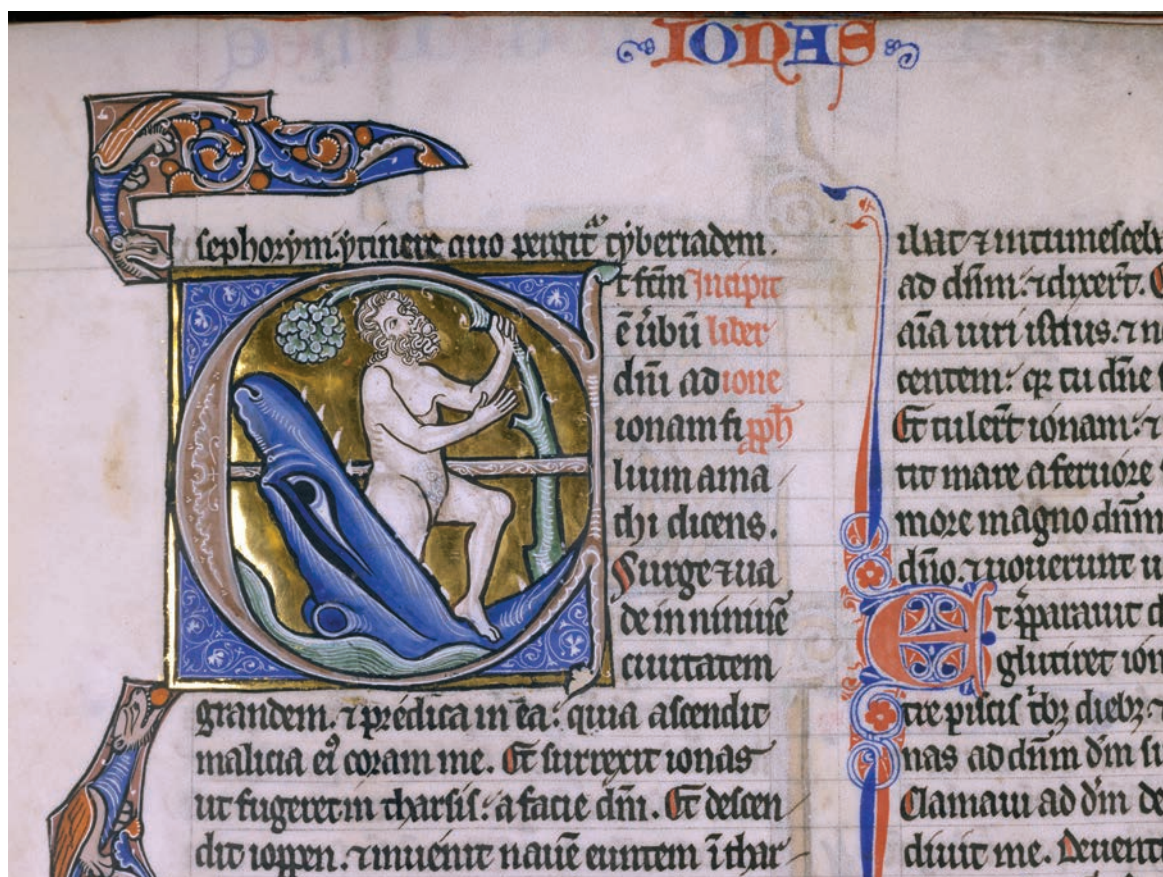 IONAS
sephorym. ytinere quo pergit᷑ tyberiadem.
t fc̄m Incipit
ē ūbū liber
dn̄i ad ione
ionam fi p̱ph̄
lium ama
thi dicens.
Surge ⁊ ua
de in niniuē
ciuitatem
grandem. ⁊ predica in ea: quia ascendit
malicia ei᷒ coram me. Et surrexit ionas
ut fugeret in tharsis: a facie dn̄i. Et descen
dit ioppen. ⁊ inuenit nauē euntem ī thar
ibat ⁊ intumesceb
ad dn̄m: ⁊ dixer̄t.
aīa uiri istius. ⁊ n
centem: qr tu dn̄e
Et tuler̄t ionam: ⁊
tit mare a feruore
more magno dn̄m
dn̄o. ⁊ uouerunt u
Et p̄parauit d
glutiret ion
tre piscis t̄bꝫ diebꝫ ⁊
nas ad dn̄m dm̄ su
Clamaui ad dn̄m de
diuit me. De uent